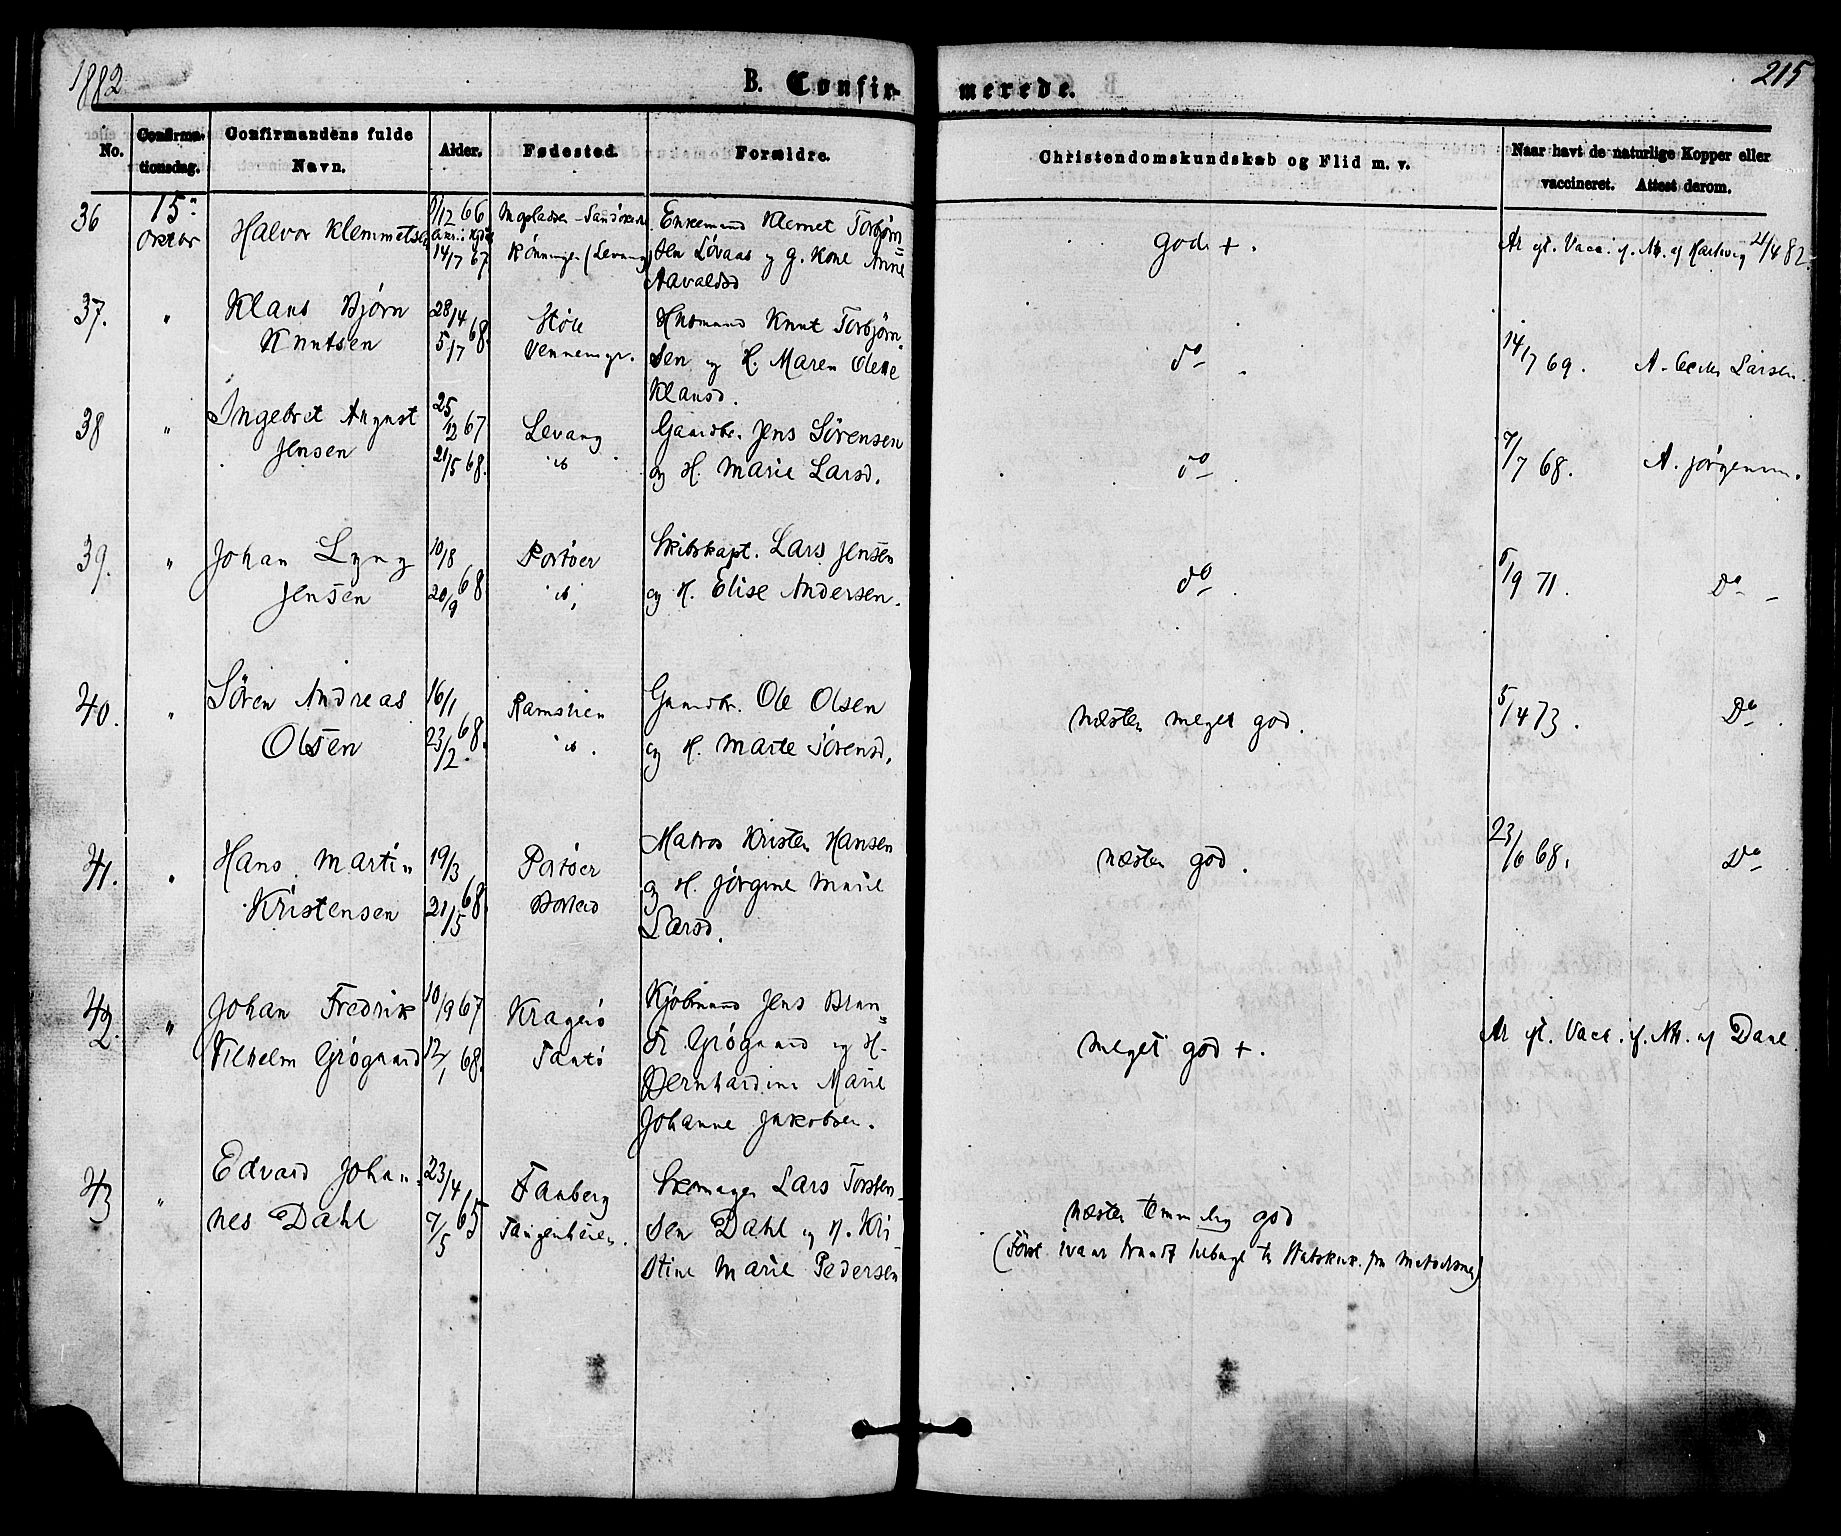 1882
B. Confir-
merede.
215
No.
Confirma-
tionsdag.
Confirmandens fulde
Navn.
Alder.
Fødested.
Forældre.
Christendomskundskab og Flid m. v.
Naar havt de naturlige Kopper eller
vaccineret. Attest derom.
36
15
Halvor Klemmetsen
9/12 66
14/7 67
(Levang)
Enkemand Klemet Torbjørn=
sen Løvaas og g. Kone Anne
Aavaldsd
god +.
Vacc.
21/4 82.
37.
"
Klaus Bjørn
Knutsen
28/4
5/7 68.
Støle
Knut Torbjørn-
sen og H. Maren Olene
Klausd.
do
14/7 69.
Larsen.
38
"
Ingebret August
Jensen
25/12 67
21/5 68.
Levang
ib
Gaardbr. Jens Sørensen
og H. Marie Larsd.
do
7/7 68.
A. Jørgensen.
39.
"
Johan Lyng
Jensen
10/8
20/9 68
Portøer
ib,
Skibskapt. Lars Jensen
og H. Elise Andersen.
do
6/9 71.
Do
40.
"
Søren Andreas
Olsen
16/1
23/2 68.
ib.
Gaardbr. Ole Olsen
og H. Marte Sørensd.
næsten meget god.
5/4 73.
Do
41.
"
Hans Martin
Kristensen
19/3
21/5 68.
Portøer
Matros Kristen Hansen
og H. Jørgine Marie
Larsd.
næsten god.
23/6 68.
Do
42.
"
Johan Fredrik
Vilhelm Grøgaard
10/9 67
12/1 68.
Kragerø
Kjøbmand Jens
Grøgaard og H.
Bernhardine Marie
Johanne Jakobsen.
meget god +.
Vacc.
Dahl
43
"
Edvard Johan-
nes Dahl
23/4
7/5 65
Skomager Lars Torsten-
sen Dahl og H. Kri-
stine Marie Pedersen
næsten temmelig god